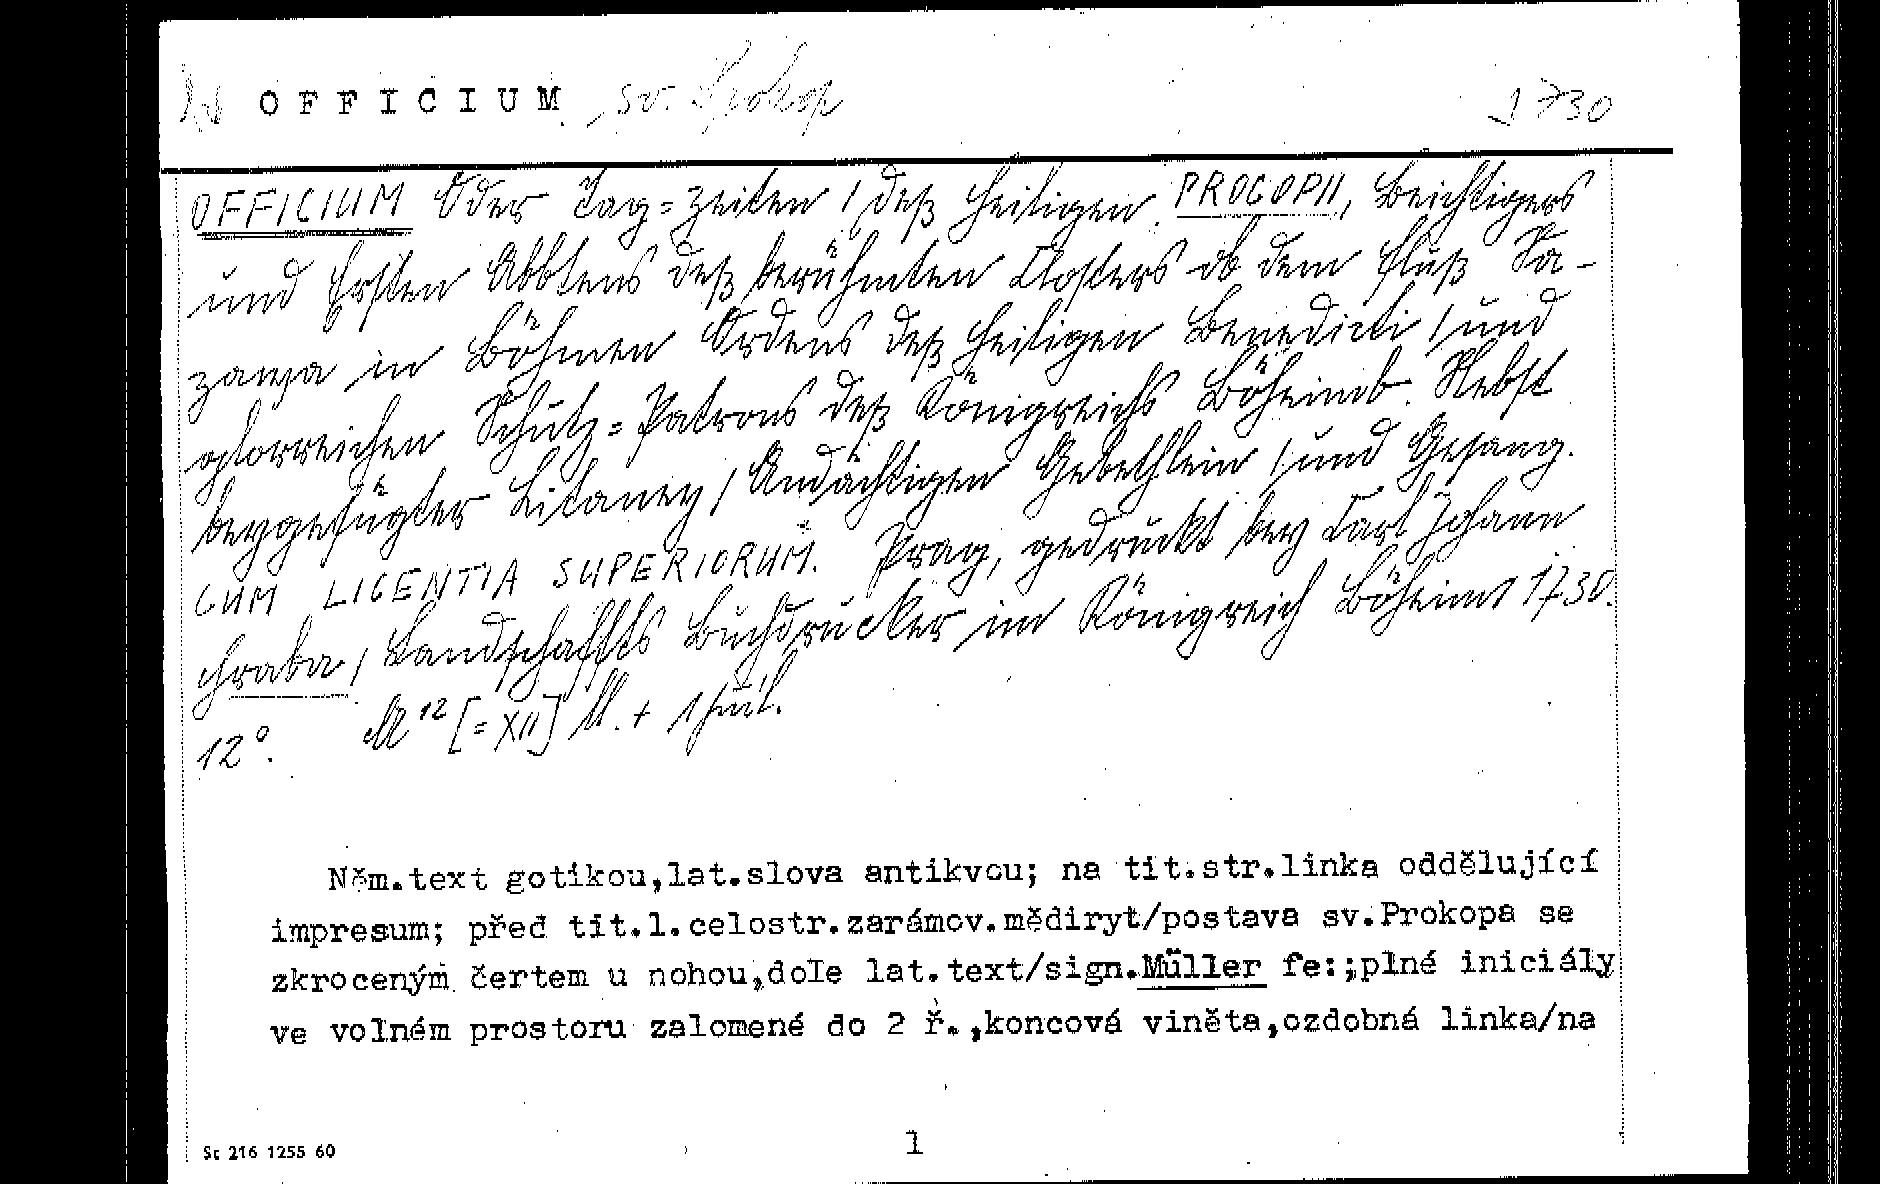 OFFICIUM, sv. Prokop 1730
OFFICIUM Oder Tag=zeiten / deß Heiligen PROCOPII, Beichtigers
und Ersten Abbtens deß berühmten Closters ob dem Fluß Sa-
zawa in Böhmen Ordens deß Heiligen Benedicti / und
glorreichen Schutz=Patrons deß Königreichs Böheimb. Nebst
beygefügter Litaney / Andächtigen Gebethlein / und Gesang.
CUM LICENTIA SUPERIORUM. Prag, gedruckt bey Carl Johann
Hraba / Landschaffts Buchdrucker im Königreich Böheimb 1730.
12°. A12 [=XII] ll. +
Něm.text gotikou,lat.slova antikvou; na tit.str.linka oddělující
impresum; před tit.l.celostr.zarámov.mědiryt/postava sv.Prokopa se
zkroceným čertem u nohou,dole lat.text/sign.Müller fe:;plné iniciály
ve volném prostoru zalomené do 2 ř.,koncová viněta,ozdobná linka/na
1
Sc 216 1255 60